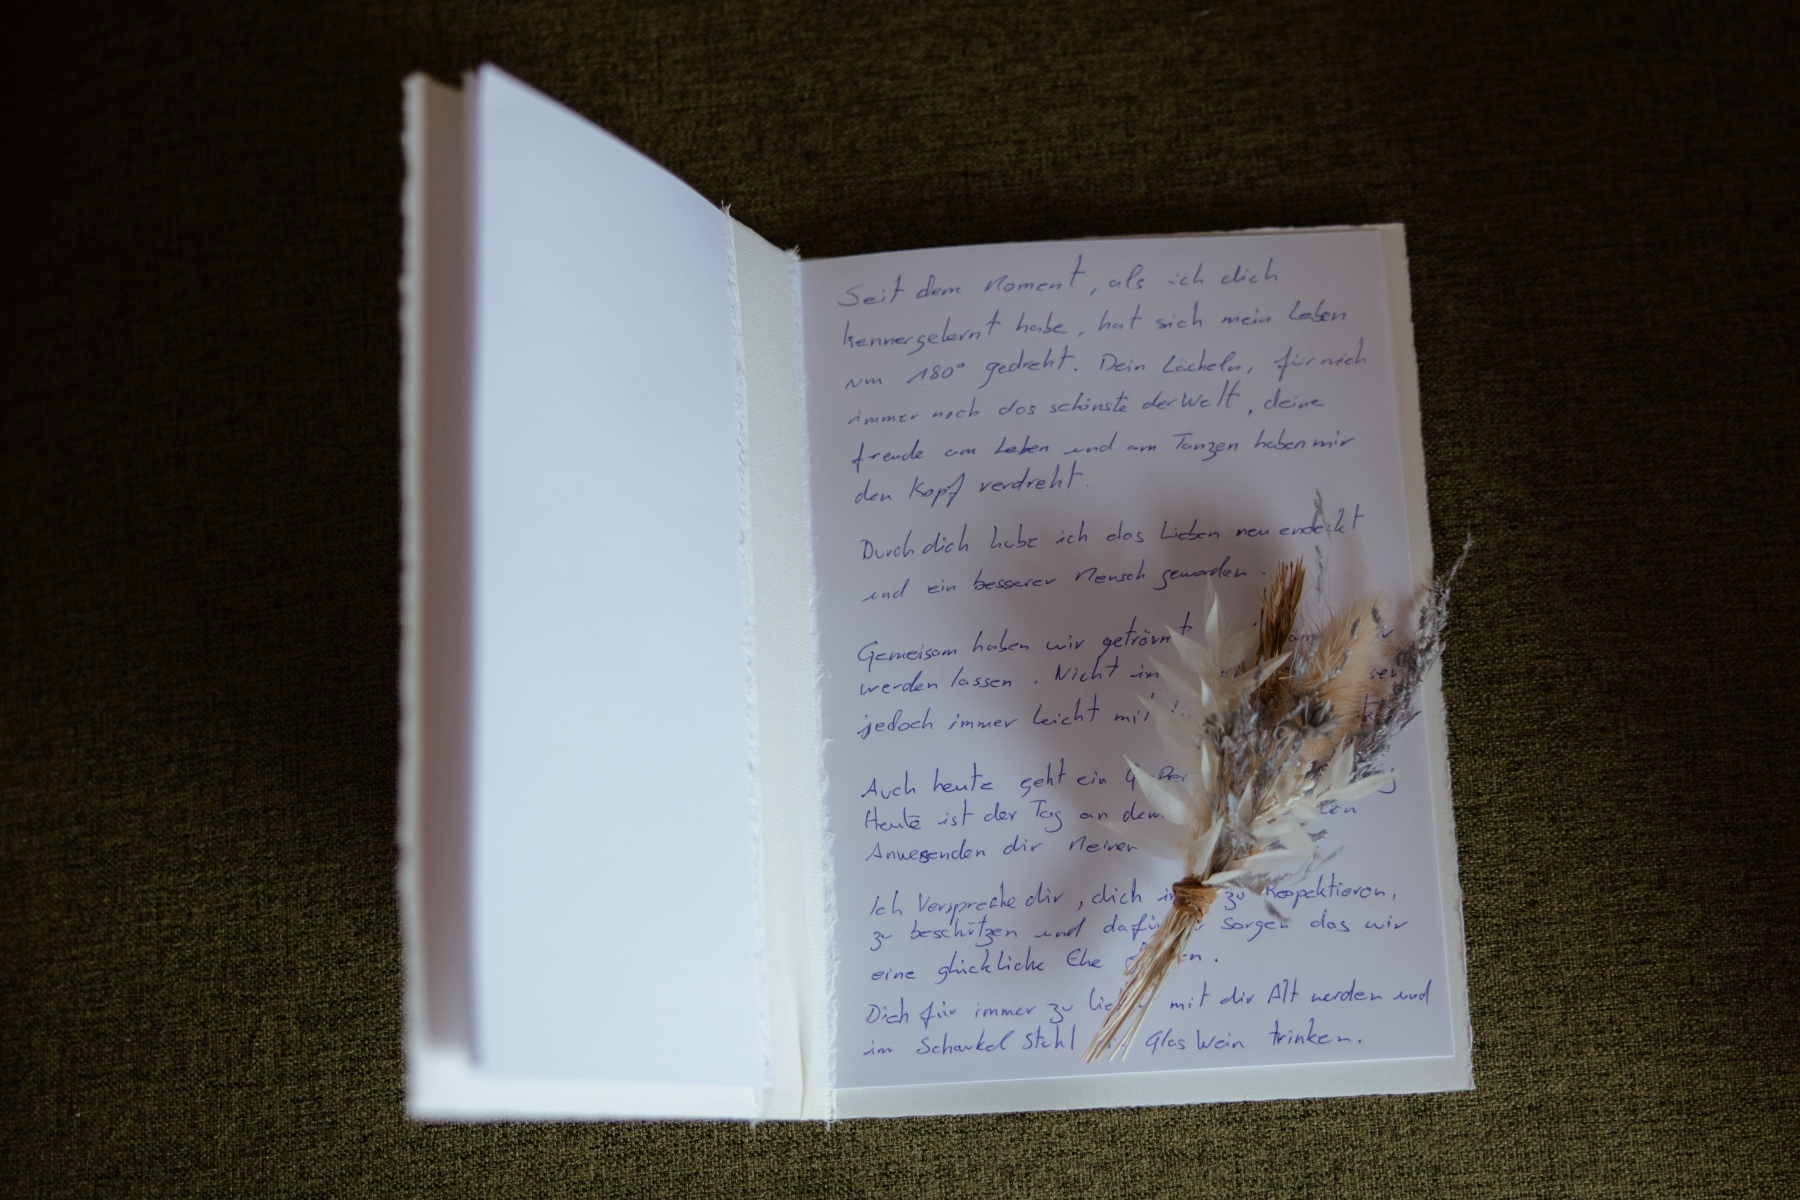 Seit dem Moment, als ich dich
kennengelernt habe, hat sich mein Leben
um 180° gedreht. Dein Lächeln, für mich
immer noch das schönste der Welt, deine
freude am Leben und am Tanzen haben mir
den Kopf verdreht.
Durch dich habe ich das Lieben neu endeckt
und ein besserer Mensch geworden.
Gemeisam haben wir geträumt
werden lassen. Nicht im
jedoch immer leicht mit
Auch heute geht ein
Heute ist der Tag an dem
Anwesenden dir Meinen
Ich Verspreche dir, dich zu Respektieren,
zu beschützen und dafür Sorgen das wir
eine glückliche Ehe
Dich für immer zu mit dir Alt werden und
im Schaukel Stuhl Glas Wein trinken.